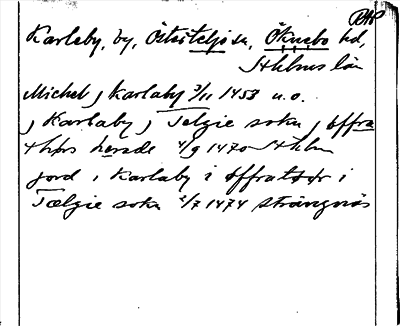 PAP
Karleby, by, Östertelje sn, Öknebo hd,
Sthlms län
Michel j karlaby 3/11 1453 u.o.
j Karlaby j Telgie sokn j øffra
+hørs herade 4/9 1470 Sthlm
jord i Karlaby i øffratør i
Tælgie sokn 2/7 1474 Strängnäs